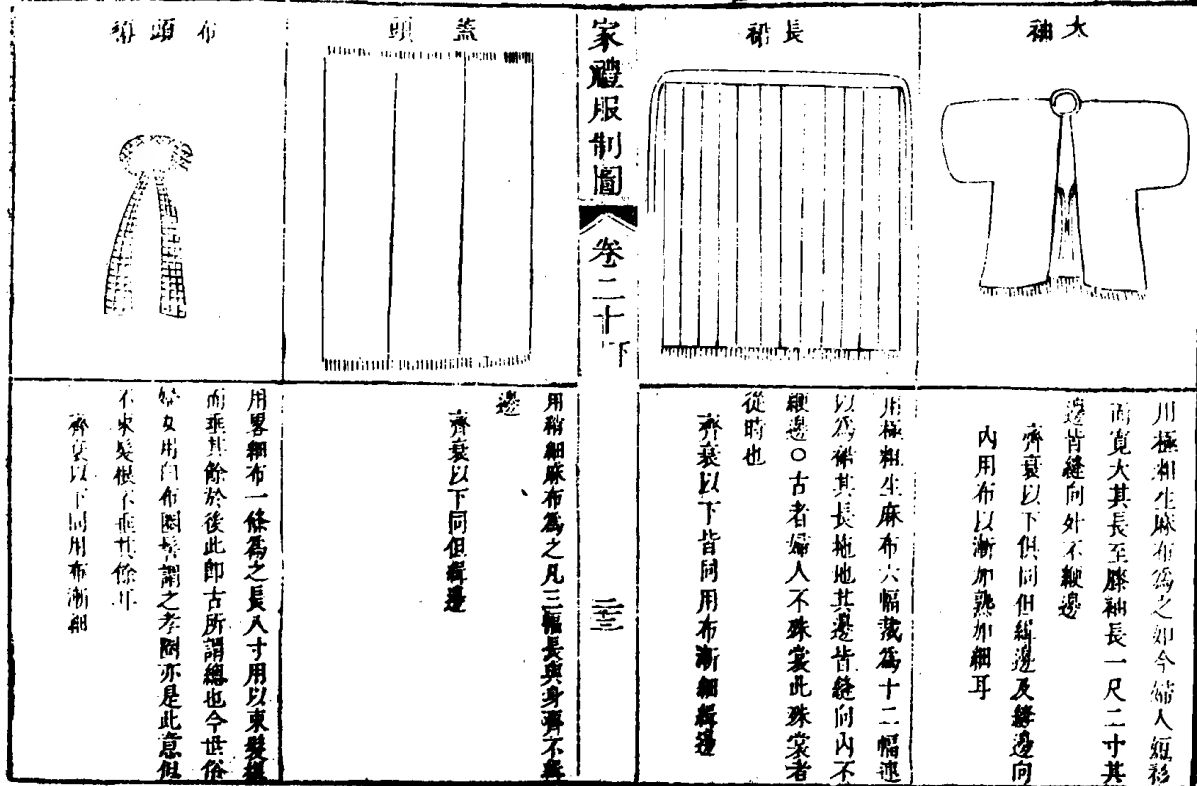 大袖
用極粗生麻布為之如今婦人短衫
而寬大其長至膝袖長一尺二寸其
邊皆縫向外不緶邊
齊衰以下俱同但緝邊及縫邊向
內用布以漸加熟加細耳
長裙
用極粗生麻布六幅裁為十二幅連
以為裙其長拖地其邊皆縫向內不
緶邊○古者婦人不殊裳此殊裳者
從時也
齊衰以下皆同用布漸細緝邊
家禮服制圖
卷二十下
三十三
蓋頭
用稍細麻布為之凡三幅長與身齊不緝
邊
齊衰以下同但緝邊
布頭𢄼
用畧細布一條為之長八寸用以束髮根
而垂其餘於後此即古所謂總也今世俗
婦女用白布圈髻謂之孝圈亦是此意但
不束髮根不垂其餘耳
齊衰以下同用布漸細